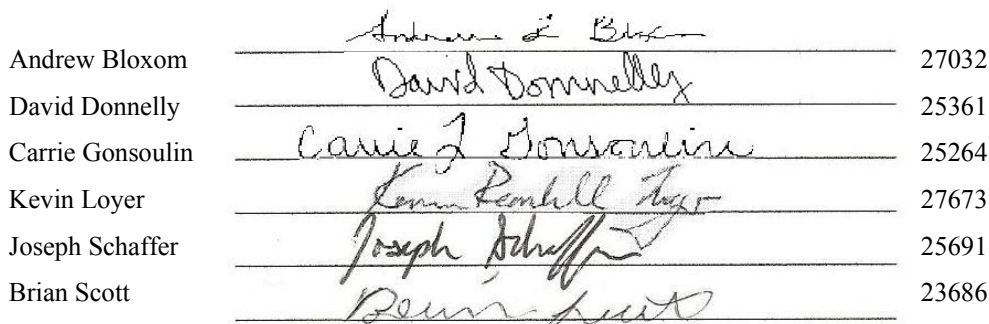 Andrew Bloxom Andrew L Bloxom 27032
David Donnelly David Donnelly 25361
Carrie Gonsoulin Carrie L Gonsoulin 25264
Kevin Loyer Kevin 27673
Joseph Schaffer Joseph Schaffer 25691
Brian Scott Brian Scott 23686